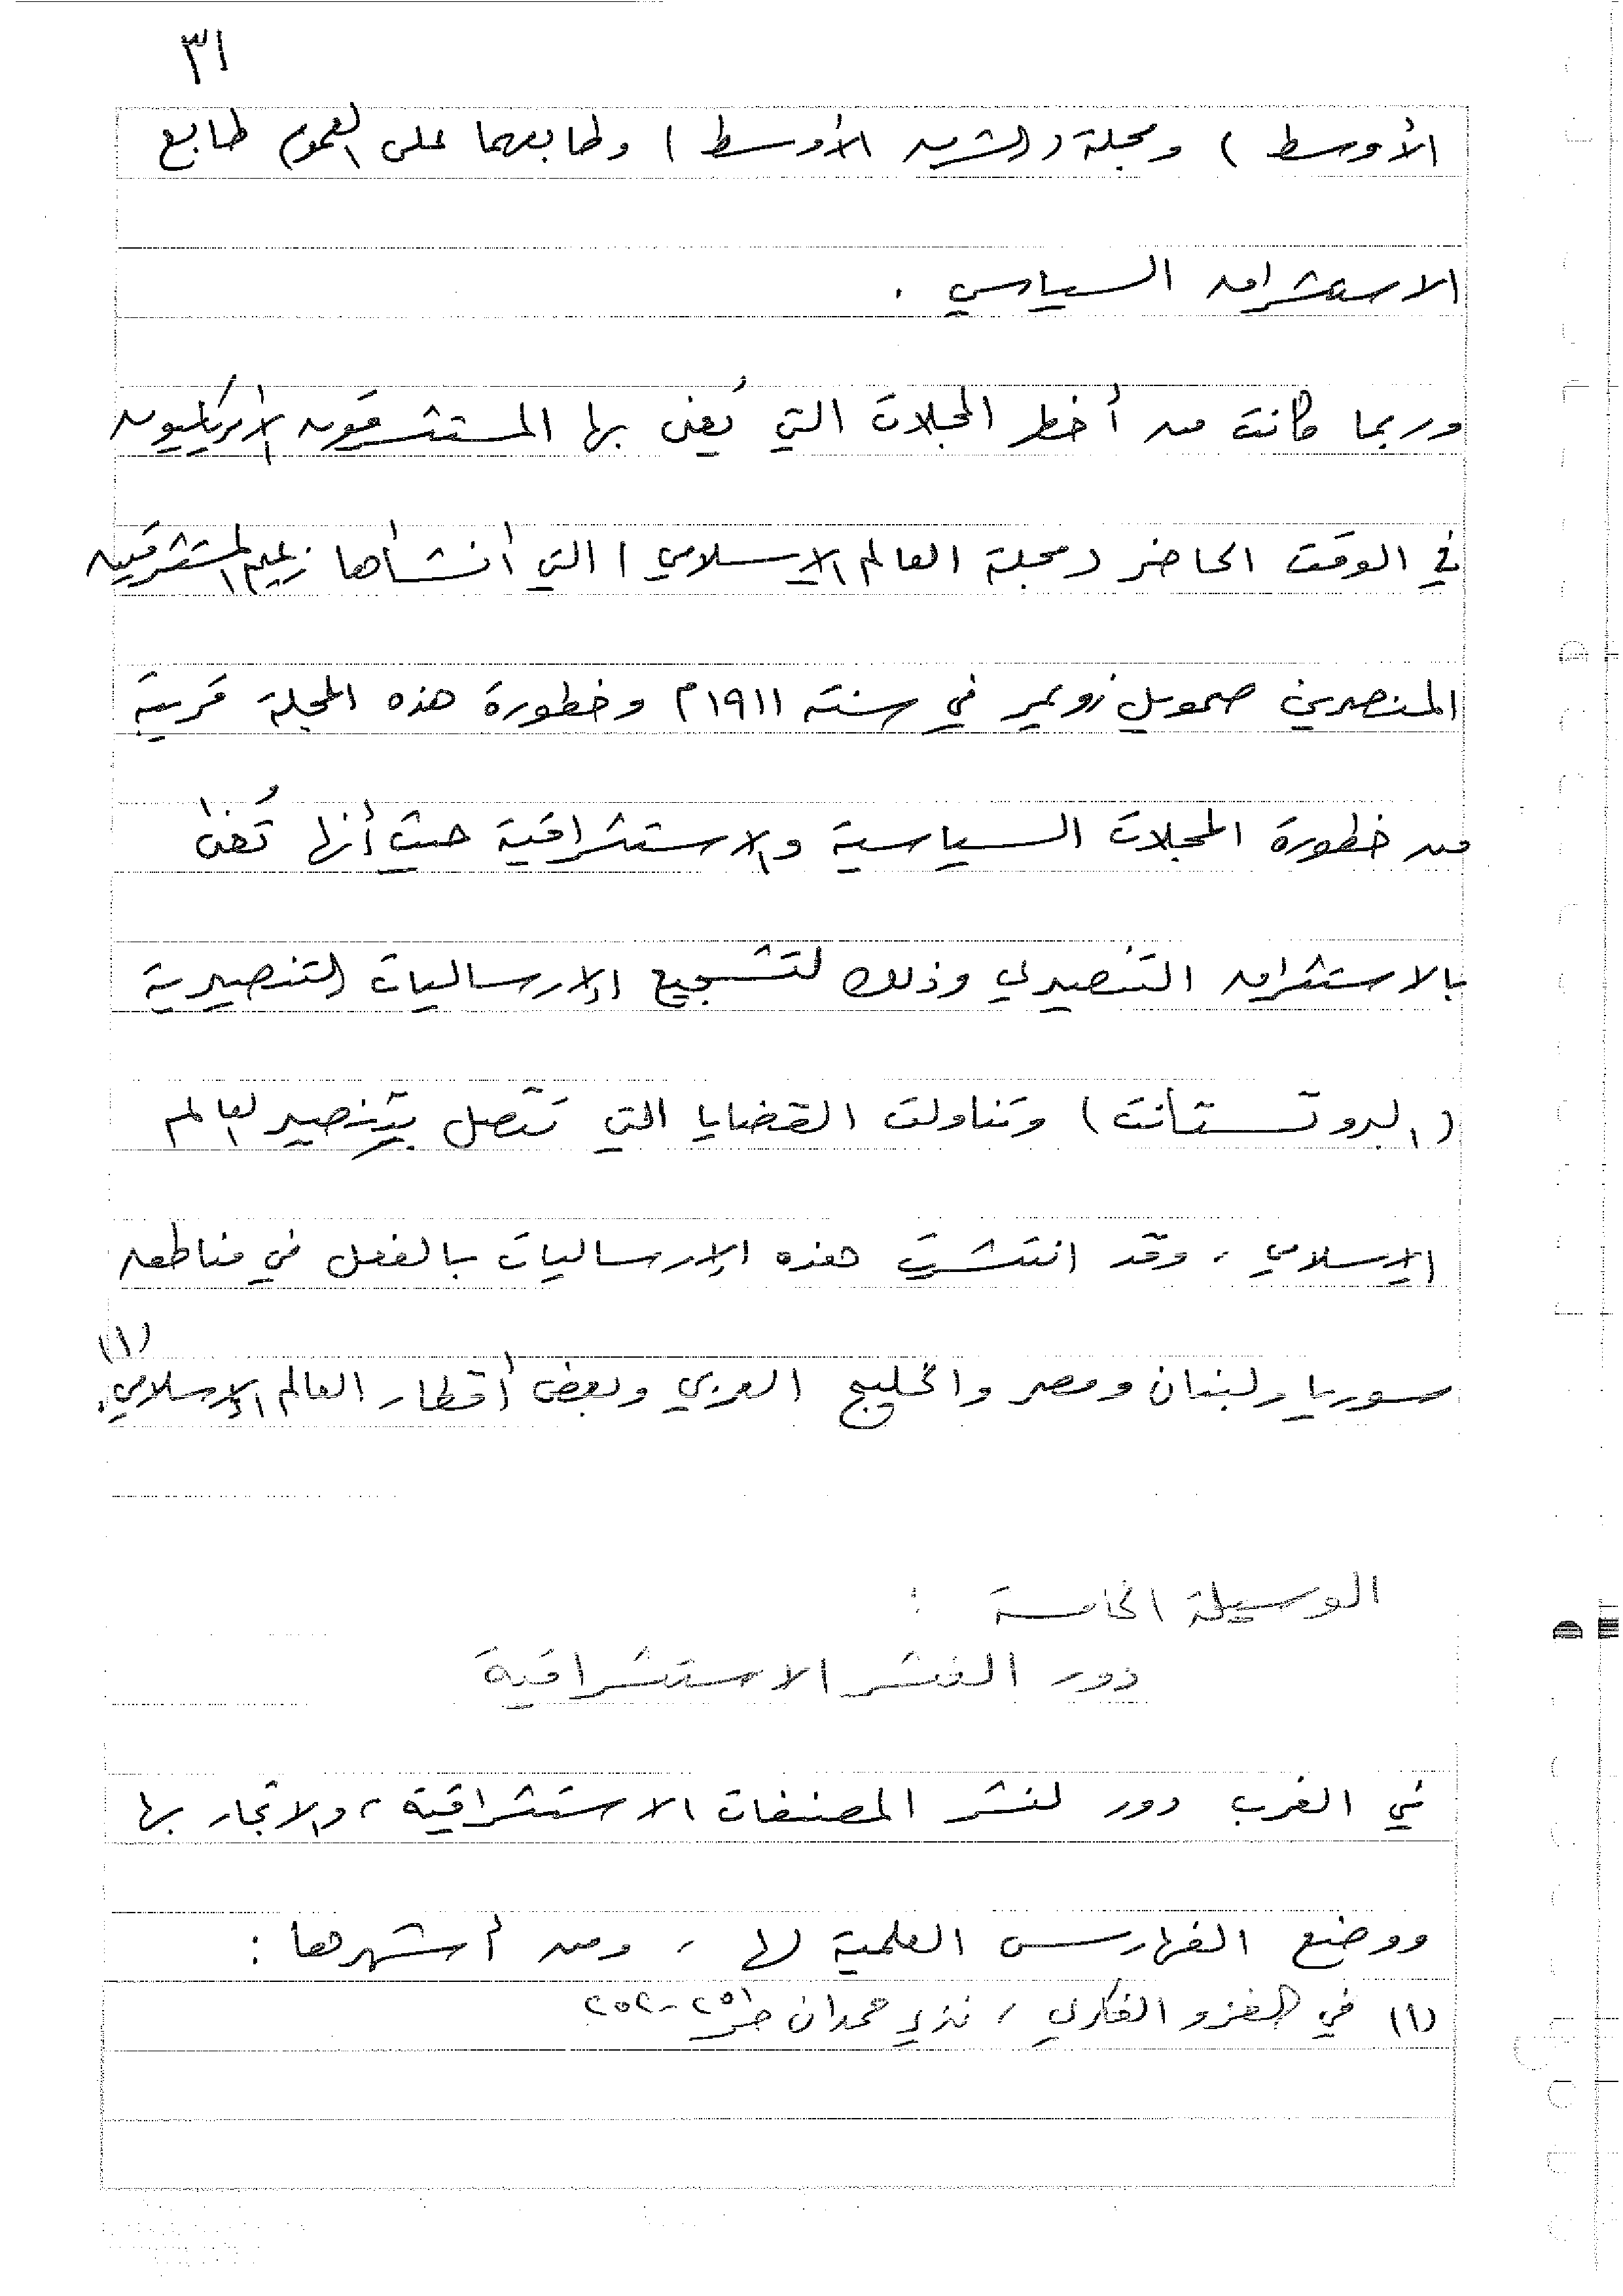 ٣١
الأوسط) ومجلة (الشرق الأوسط) وطابعهما على العموم طابع
الاستشراق السياسي .
وربما كانت من أخطر المجلات التي يُعنى بها المستشرقون الأمريكيون
في الوقت الحاضر (مجلة العالم الإسلامي) التي أنشأها زعيم المستشرقين
المنصرين صمويل زويمر في سنة ١٩١١م وخطورة هذه المجلة قريبة
من خطورة المجلات السياسية والاستشراقية حيث أنها تُعنى
بالاستشراق التنصيري وذلك لتشجيع الإرساليات التنصيرية
(البروتستانت) وتناولت القضايا التي تتصل بتنصير العالم
الإسلامي ، وقد انتشرت هذه الإرساليات بالفعل في مناطق
سوريا ولبنان ومصر والخليج العربي وبعض أقطار العالم الإسلامي . (١)
الوسيلة الخامسة :
دور النشر الاستشراقية
في الغرب دور لنشر المصنفات الاستشراقية ، والاتجار بها
ووضع الفهارس العلمية لها ، ومن أشهرها :
(١) في الغزو الفكري ، نذير حمدان ص ٢٥١-٢٥٢